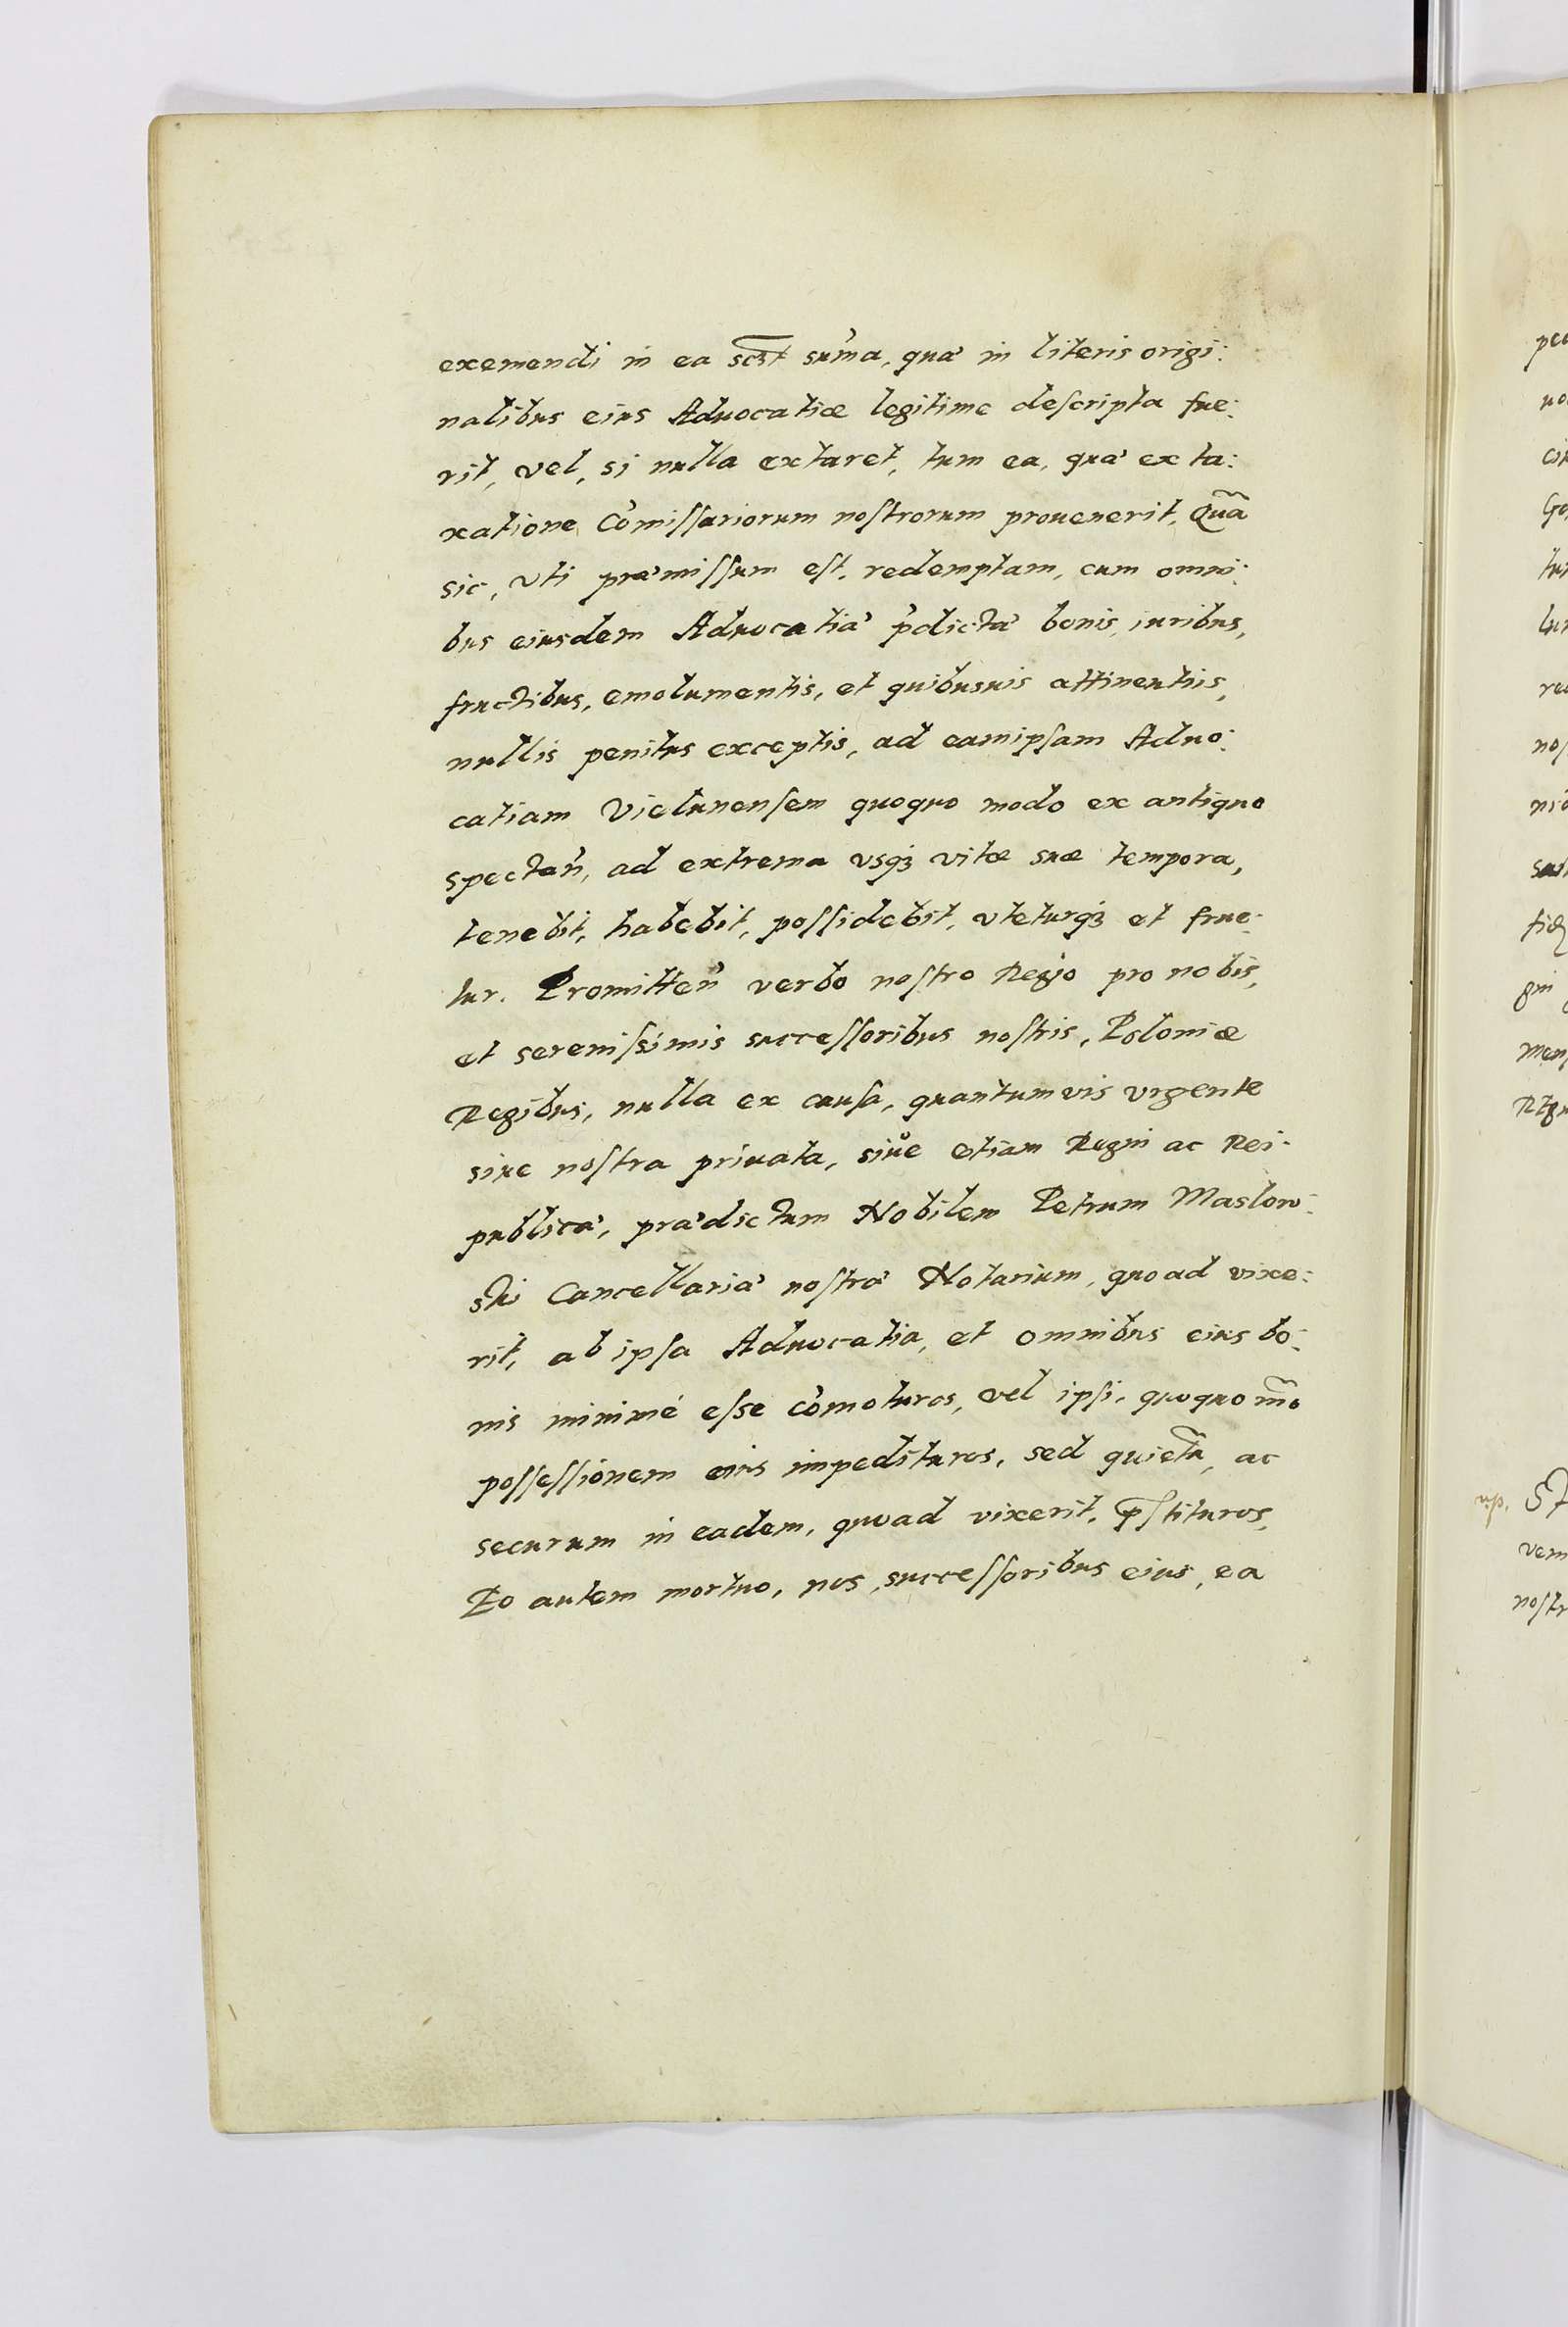 exemendi in ea sczt sum̃a, quæ in literis origi:
nalibus eius Aduocatiæ legitime deſcripta fue:
rit, vel, si nulla extaret, tum ea, quæ ex ta:
xatione Com̃iſſariorum noſtrorum prouenerit, Quã
sic, vti præmiſſum eſt, redemptam, cum omni:
bus eiusdem Aduocatiæ p̃dictæ bonis, iuribus,
fructibus, emolumentis, et quibusuis attinentiis,
nullis penitus exceptis, ad eamipſam Aduo:
catiam Vielunenſem quoquo modo ex antiquo
spectañ, ad extrema vsqꝫ vitæ suæ tempora,
tenebit, habebit, poſſidebit, vteturqꝫ et frue:
tur. Promitteñ verbo noſtro Regio pro nobis,
et sereniſsimis succeſſoribus noſtris, Poloniæ
Regibus, nulla ex cauſa, quantumvis vrgente
siue noſtra priuata, siue etiam Regni ac Rei:
publicæ, prædictum Nobilem Petrum Maslow:
ski Cancellariæ noſtræ Notarium, quoad vixe:
rit, ab ipſa Aduocatia, et omnibus eius bo:
nis minimè eſse com̃oturos, vel ipſi, quoquo m̃o
poſſeſſionem eius impedituros, sed quietũ, ac
securum in eadem, quoad vixerit, p̃ſtituros,
Eo autem mortuo, nos, succeſſoribus eius, ea
vip.